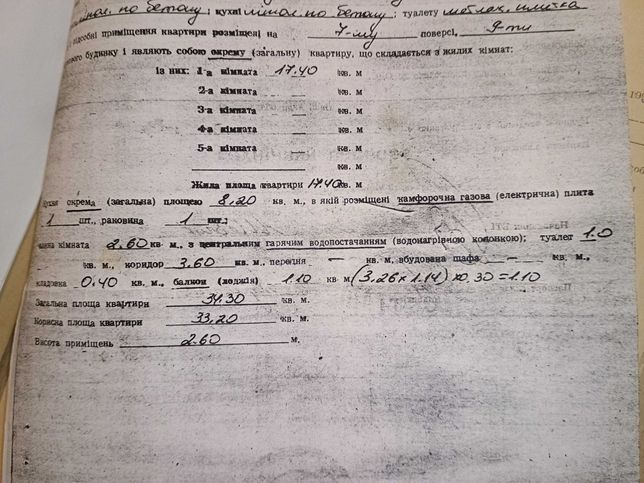 лінол. по бетону; кухні лінол. по бетону; туалету метлах. плитка
підсобні приміщення квартири розміщені на 7-му поверсі, 9-ти
будинку і являють собою окрему (загальну) квартиру, що складається з жилих кімнат:
із них: 1-а кімната 17.40 кв. м
2-а кімната — кв. м
3-а кімната — кв. м
4-а кімната — кв. м
5-а кімната — кв. м
кв. м
Жила площа квартири 17.40 кв. м
окрема (загальна) площею 8,20 кв. м., в якій розміщені камфорочна газова (електрична) плита
1 шт., раковина 1 шт.;
кімната 2.60 кв. м., з центральним гарячим водопостачанням (водонагрівною колонкою); туалет 1.0
кв. м., коридор 3.60 кв. м., передня — кв. м, вбудована шафа — кв. м.,
кладовка 0.40 кв. м., балкон (лоджія) 1.10 кв м (3,26 x 1.14) x0.30=1.10
Загальна площа квартири 34.30 кв. м.
Корисна площа квартири 33,20 кв. м.
Висота приміщень 2.60 м.